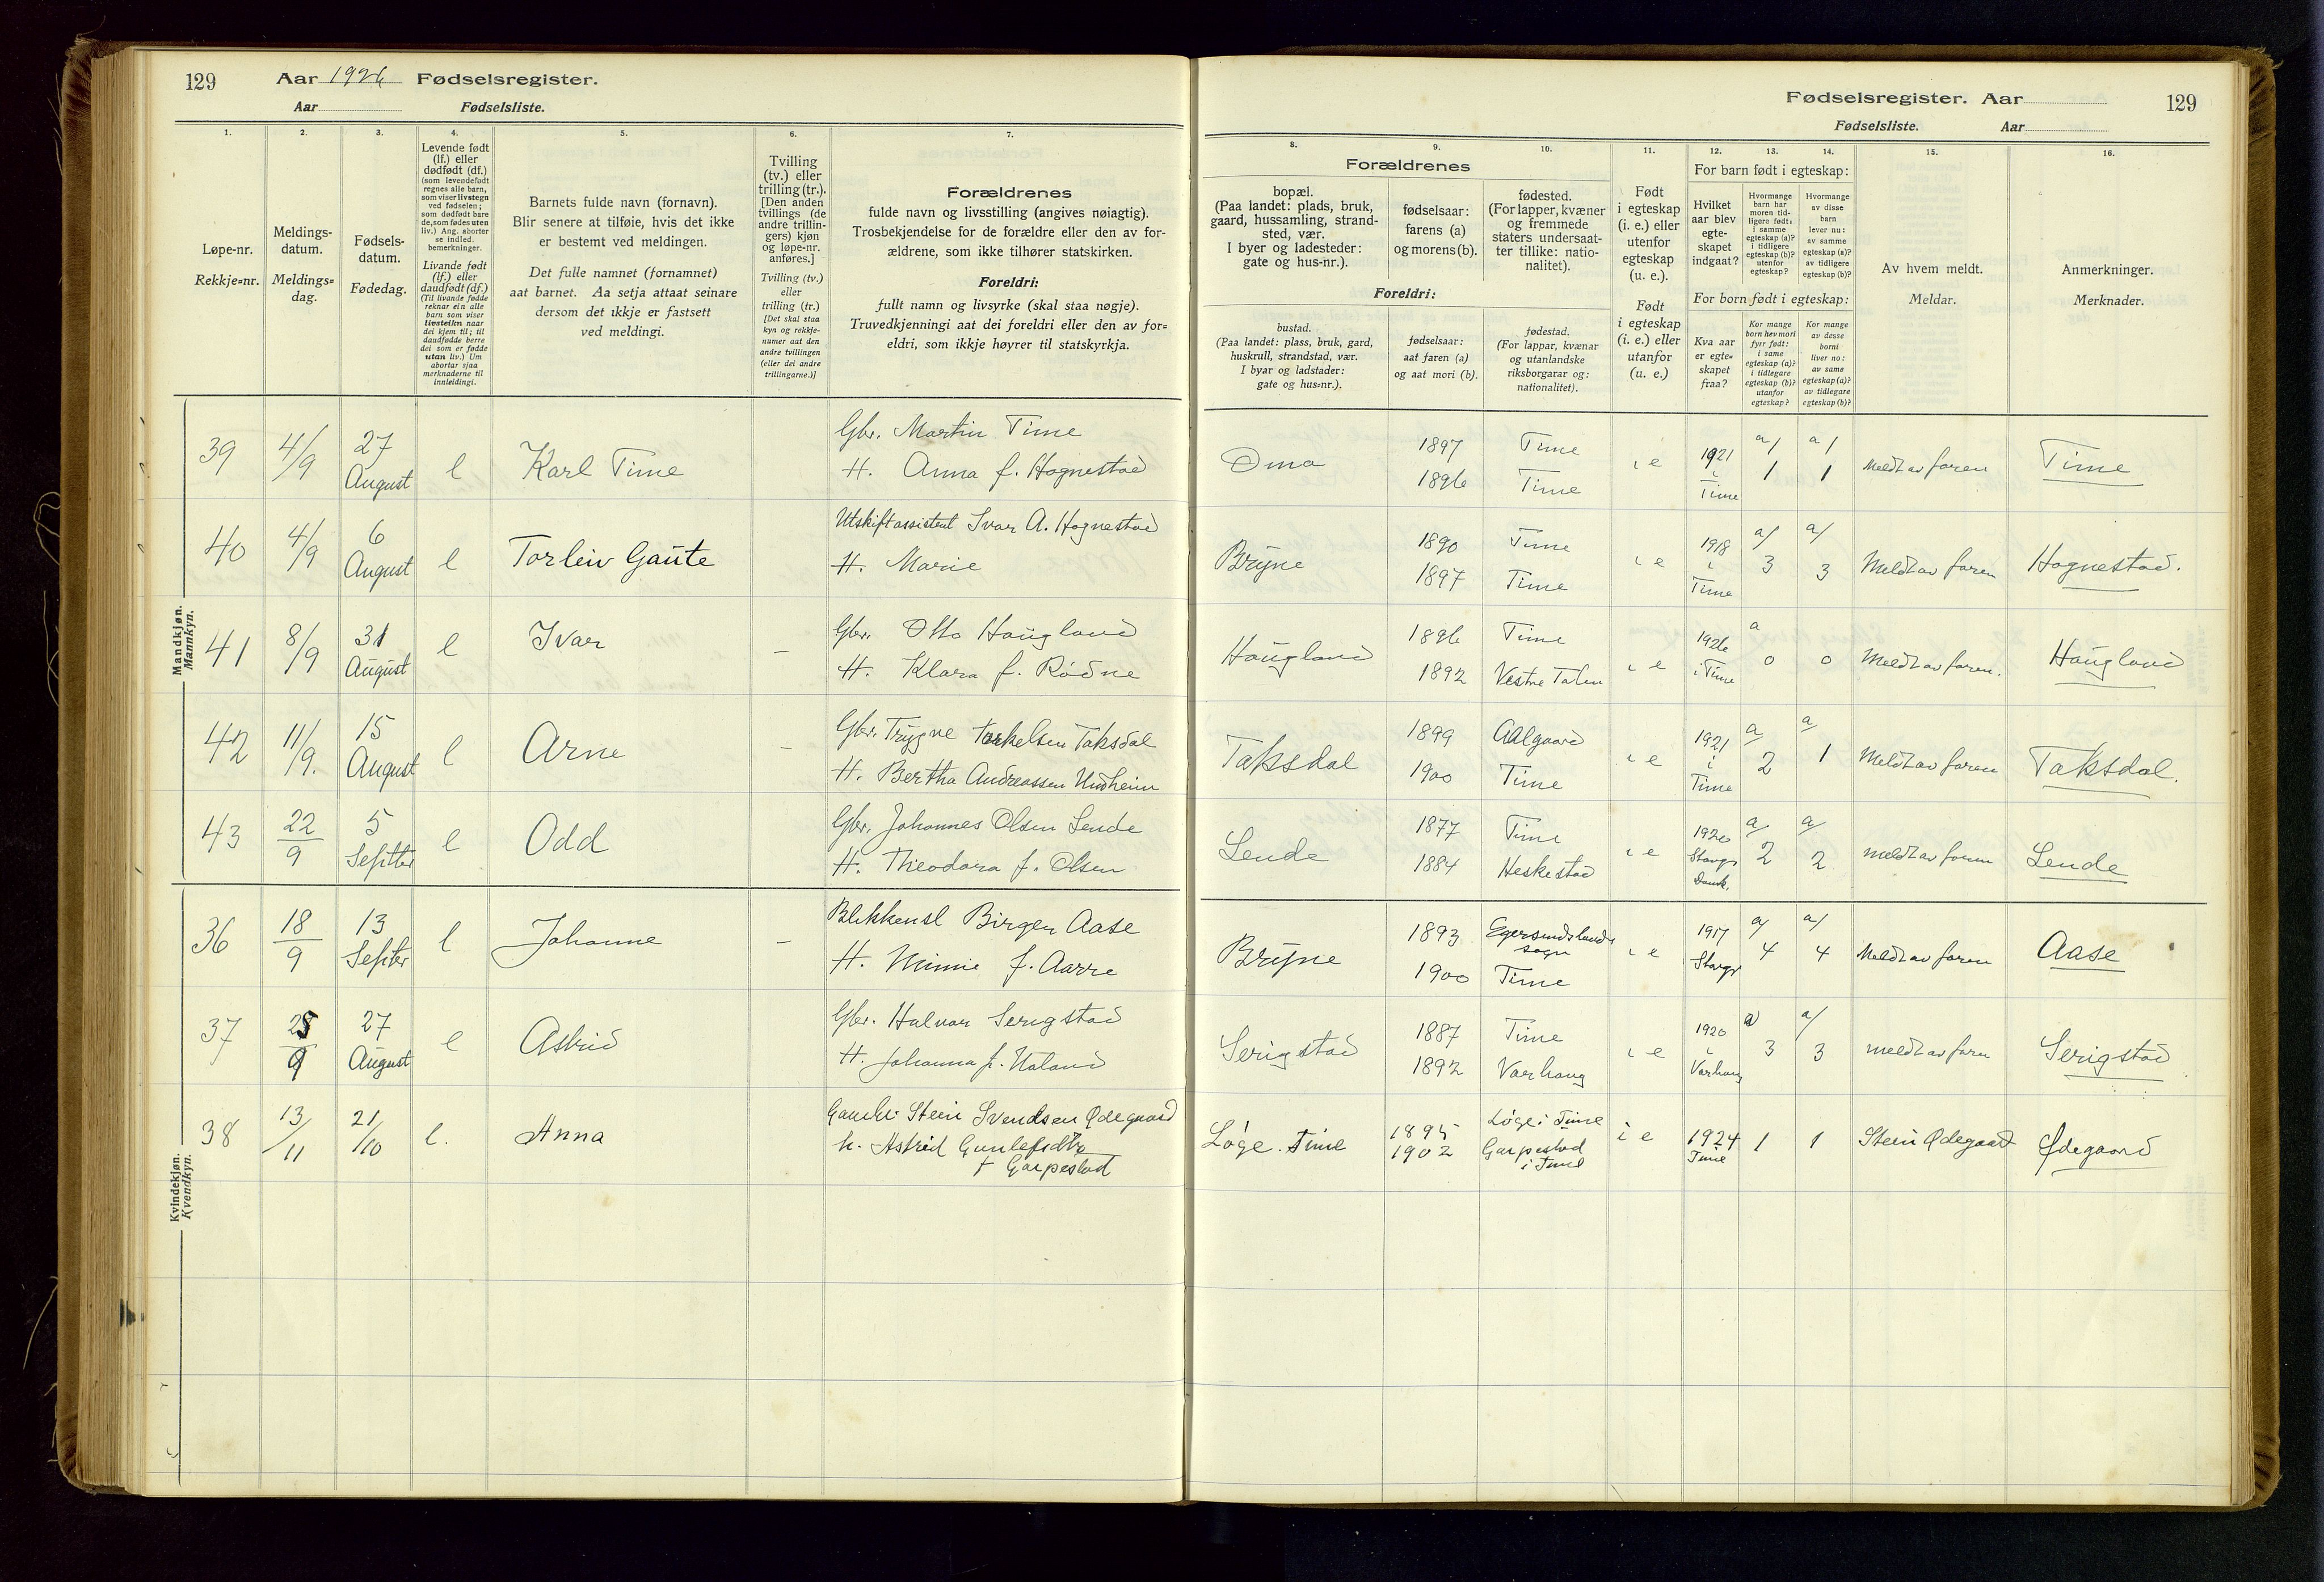 129 Aar 1926 Fødselsregister.
Aar Fødselsliste.
Fødselsregister. Aar 129
Fødselsliste. Aar
1. 2. 3. 4. 5. 6. 7.
Løpe-nr.
Rekkje=nr.
Meldings-
datum.
Meldings=
dag.
Fødsels-
datum.
Fødedag.
Levende født
(lf.) eller
dødfødt (df.)
(som levendefødt
regnes alle barn,
som viser livstegn
ved fødselen;
som dødfødt bare
de, som fødes uten
liv.) Ang. aborter
se indled.
bemerkninger.
Livande født
(lf.) eller
daudfødt (df.)
(Til livande fødde
reknar ein alle
barn som viser
livsteikn naar
dei kjem til; til
daudfødde berre
dei som er fødde
utan liv.) Um
abortar sjaa
merknaderne til
innleidingi.
Barnets fulde navn (fornavn).
Blir senere at tilføie, hvis det ikke
er bestemt ved meldingen.
Det fulle namnet (fornamnet)
aat barnet. Aa setja attaat seinare
dersom det ikkje er fastsett
ved meldingi.
Tvilling
(tv.) eller
trilling (tr.).
[Den anden
tvillings (de
andre trillin-
gers) kjøn
og løpe-nr.
anføres.]
Tvilling (tv.)
eller
trilling (tr.)
[Det skal staa
kyn og rekkje-
numer aat den
andre tvillingen
(eller dei andre
trillingarne.)]
Forældrenes
fulde navn og livsstilling (angives nøiagtig).
Trosbekjendelse for de forældre eller den av for-
ældrene, som ikke tilhører statskirken.
Foreldri:
fullt namn og livsyrke (skal staa nøgje).
Truvedkjenningi aat dei foreldri eller den av for=
eldri, som ikkje høyrer til statskyrkja.
8. 9. 10. 11. 12. 13. 14. 15. 16.
Forældrenes
bopæl.
(Paa landet: plads, bruk,
gaard, hussamling, strand-
sted, vær.
I byer og ladesteder:
gate og hus-nr.).
fødselsaar:
farens (a)
og morens (b).
fødested.
(For lapper, kvæner
og fremmede
staters undersaat-
ter tillike: natio-
nalitet).
Foreldri:
bustad.
(Paa landet: plass, bruk, gard,
huskrull, strandstad, vær.
I byar og ladstader:
gate og hus=nr.).
fødselsaar:
aat faren (a)
og aat mori (b).
fødestad.
(For lappar, kvænar
og utanlandske
riksborgarar og:
nationalitet).
Født
i egteskap
(i. e.) eller
utenfor
egteskap
(u. e.).
Født
i egteskap
(i. e.) eller
utanfor
(u. e.)
For barn født i egteskap:
Hvilket
aar blev
egte-
skapet
indgaat?
Hvormange
barn har
moren tid-
ligere født:
i samme
egteskap (a)?
i tidligere
egteskap (b)?
utenfor
egteskap?
Hvormange
av disse
barn
lever nu:
av samme
egteskap (a)?
av tidligere
egteskap (b)?
For born født i egteskap:
Kva aar
er egte=
skapet
fraa?
Kor mange
born hev mori
fyrr født:
i same
egteskap (a)?
i tidlegare
egteskap (b)?
utanfor
egteskap?
Kor mange
av desse
borni
liver no:
av same
egteskap (a)?
av tidlegare
egteskap (b)?
Av hvem meldt.
Meldar.
Anmerkninger.
Merknader.
Mandkjøn.
Mannkyn.
39 4/9 27 August l Karl Time Gbr. Martin Time
H. Anna f. Hognestad
Oma 1897 Time i e 1921 a/ a/ Meldt av faren Time
1896 Time i Time 1 1
40 4/9 6 August l Torleiv Gaute Utskiftassistent Ivar A. Hognestad
H. Marie
Bryne 1890 Time i e 1918 a/ a/ Meldt av faren Hognestad.
1897 Time i Time 3 3
41 8/9 31 August l Ivar – Gbr. Otto Haugland
H. Klara f. Rødne
Haugland 1896 Time i e 1926 a Meldt av faren. Haugland
1892 Vestre i Time 0 0
42 11/9. 15 August l Arne – Gbr. Trygve Torkelsen Taksdal
H. Bertha Andreassen Undheim
Taksdal 1899 Aalgaard i e 1921 a/ a/ Meldt av faren Taksdal.
1900 Time i Time 2 1
43 22/9 5 Septbr l Odd Gbr. Johannes Olsen Lende
H. Theodora f. Olsen
Lende 1877 Time i e 1920 a/ a/ meldt av faren Lende
1884 Heskestad Stavgr Domk. 2 2
Kvindekjøn.
Kvendkyn.
36 18/9 13 Septbr l Johanne – Blikkensl Birger Aase
H. Minnie f. Aarre
Bryne 1893 Egersunds lands sogn i e 1917 a/ a/ Meldt av faren Aase
1900 Time Stavgr 4 4
37 25/9 27 August l Astrid Gbr. Halvar Serigstad
H. Johanna f. Haland
Serigstad 1887 Time i e 1920 a/ a/ meldt av faren Serigstad
1892 Varhaug i Varhaug 3 3
38 13/11 21/10 l. Anna Stein Svendsen Ødegaard
h. Astrid Gunlefsdtr
f Garpestad
Løge. Time 1895 Løge i Time i e 1924 1 1 Stein Ødegaard Ødegaard
1902 Garpestad i Time Time